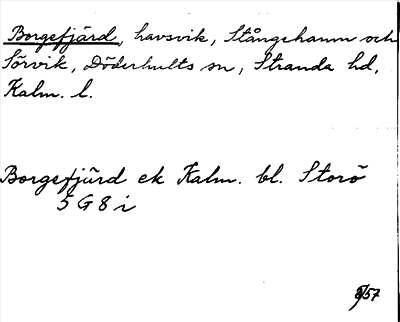 Borgefjärd, havsvik, Stångehamn och
Sörvik, Döderhults sn, Stranda hd,
Kalm. l.
Borgefjärd ek Kalm. bl. Storö
5 G 8 i